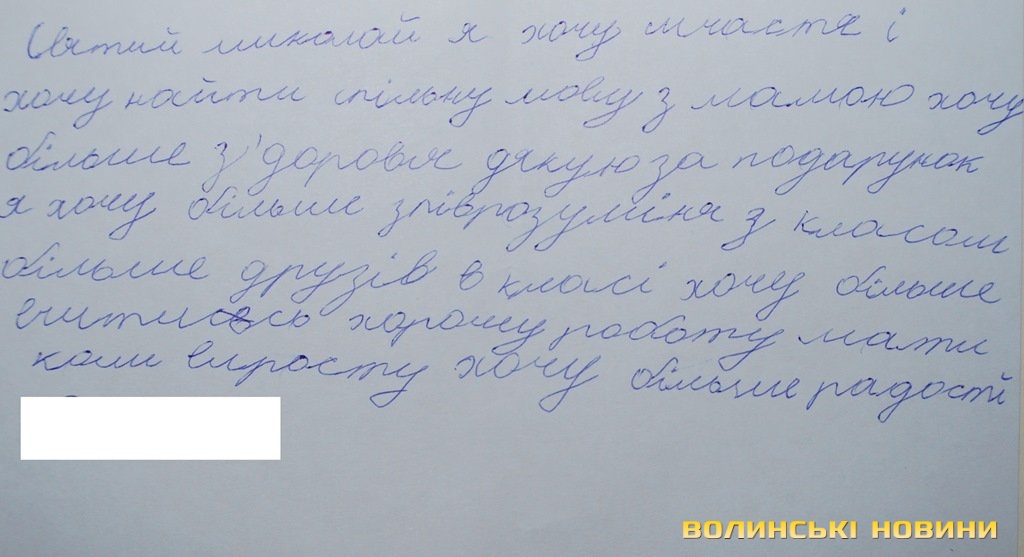 Святий миколай я хочу щчастя і
хочу найти спільну мову з мамою хочу
більше з'доровя дякую за подарунок
я хочу більше зпіврозуміня з класом
більше друзів в класі хочу більше
вчитись хорошу роботу мати
коли виросту хочу більше радості
ВОЛИНСЬКІ НОВИНИ